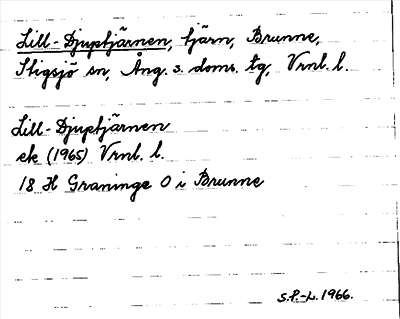 Lill-Djuptjärnen, tjärn, Brunne,
Stigsjö sn, Ång. s. doms. tg, Vrnl. l.
Lill-Djuptjärnen
ek (1965) Vrnl. l.
18 H Graninge O i Brunne
S.P.-L. 1966.